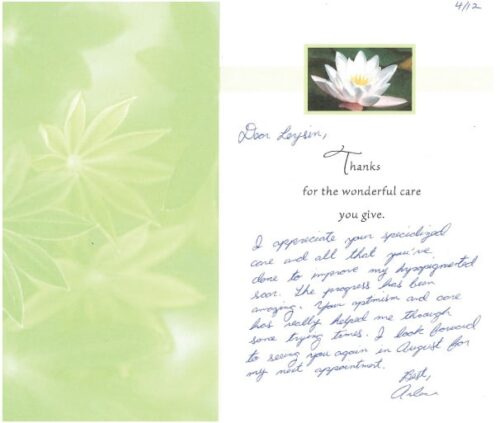 4/12
Dear Leysin,
Thanks
for the wonderful care
you give.
I appreciate your specialized
care and all that you've
done to improve my hypopigmented
scar. The progress has been
amazing. Your optimism and care
has really helped me through
some trying times. I look forward
to seeing you again in August for
my next appointment.
Best,